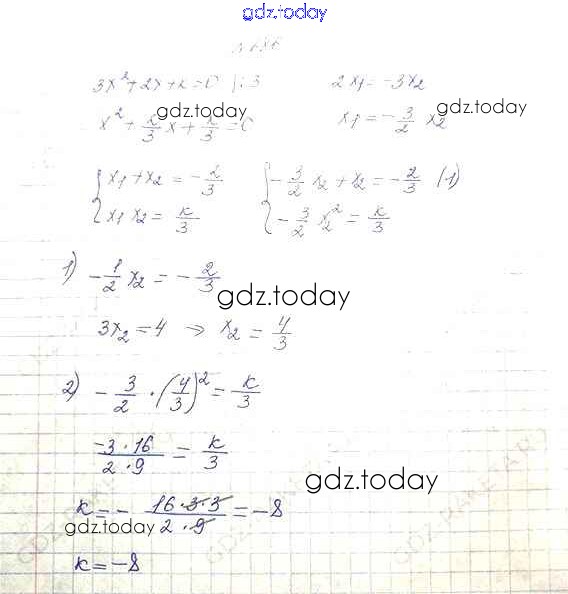 gdz.today
3x² + 2x + k = 0 |:3 2x₁ = -3x₂
x² + 2/3 x + k/3 = 0 x₁ = -3/2 x₂
gdz.today gdz.today
{ x₁ + x₂ = -2/3 { -3/2 x₂ + x₂ = -2/3 (1)
x₁ x₂ = k/3 -3/2 x₂² = k/3
1) -1/2 x₂ = -2/3
gdz.today
3x₂ = 4 → x₂ = 4/3
2) -3/2 · (4/3)² = k/3
-3·16/2·9 = k/3
gdz.today
k = - 16·3·3/2·9 = -8
gdz.today
k = -8